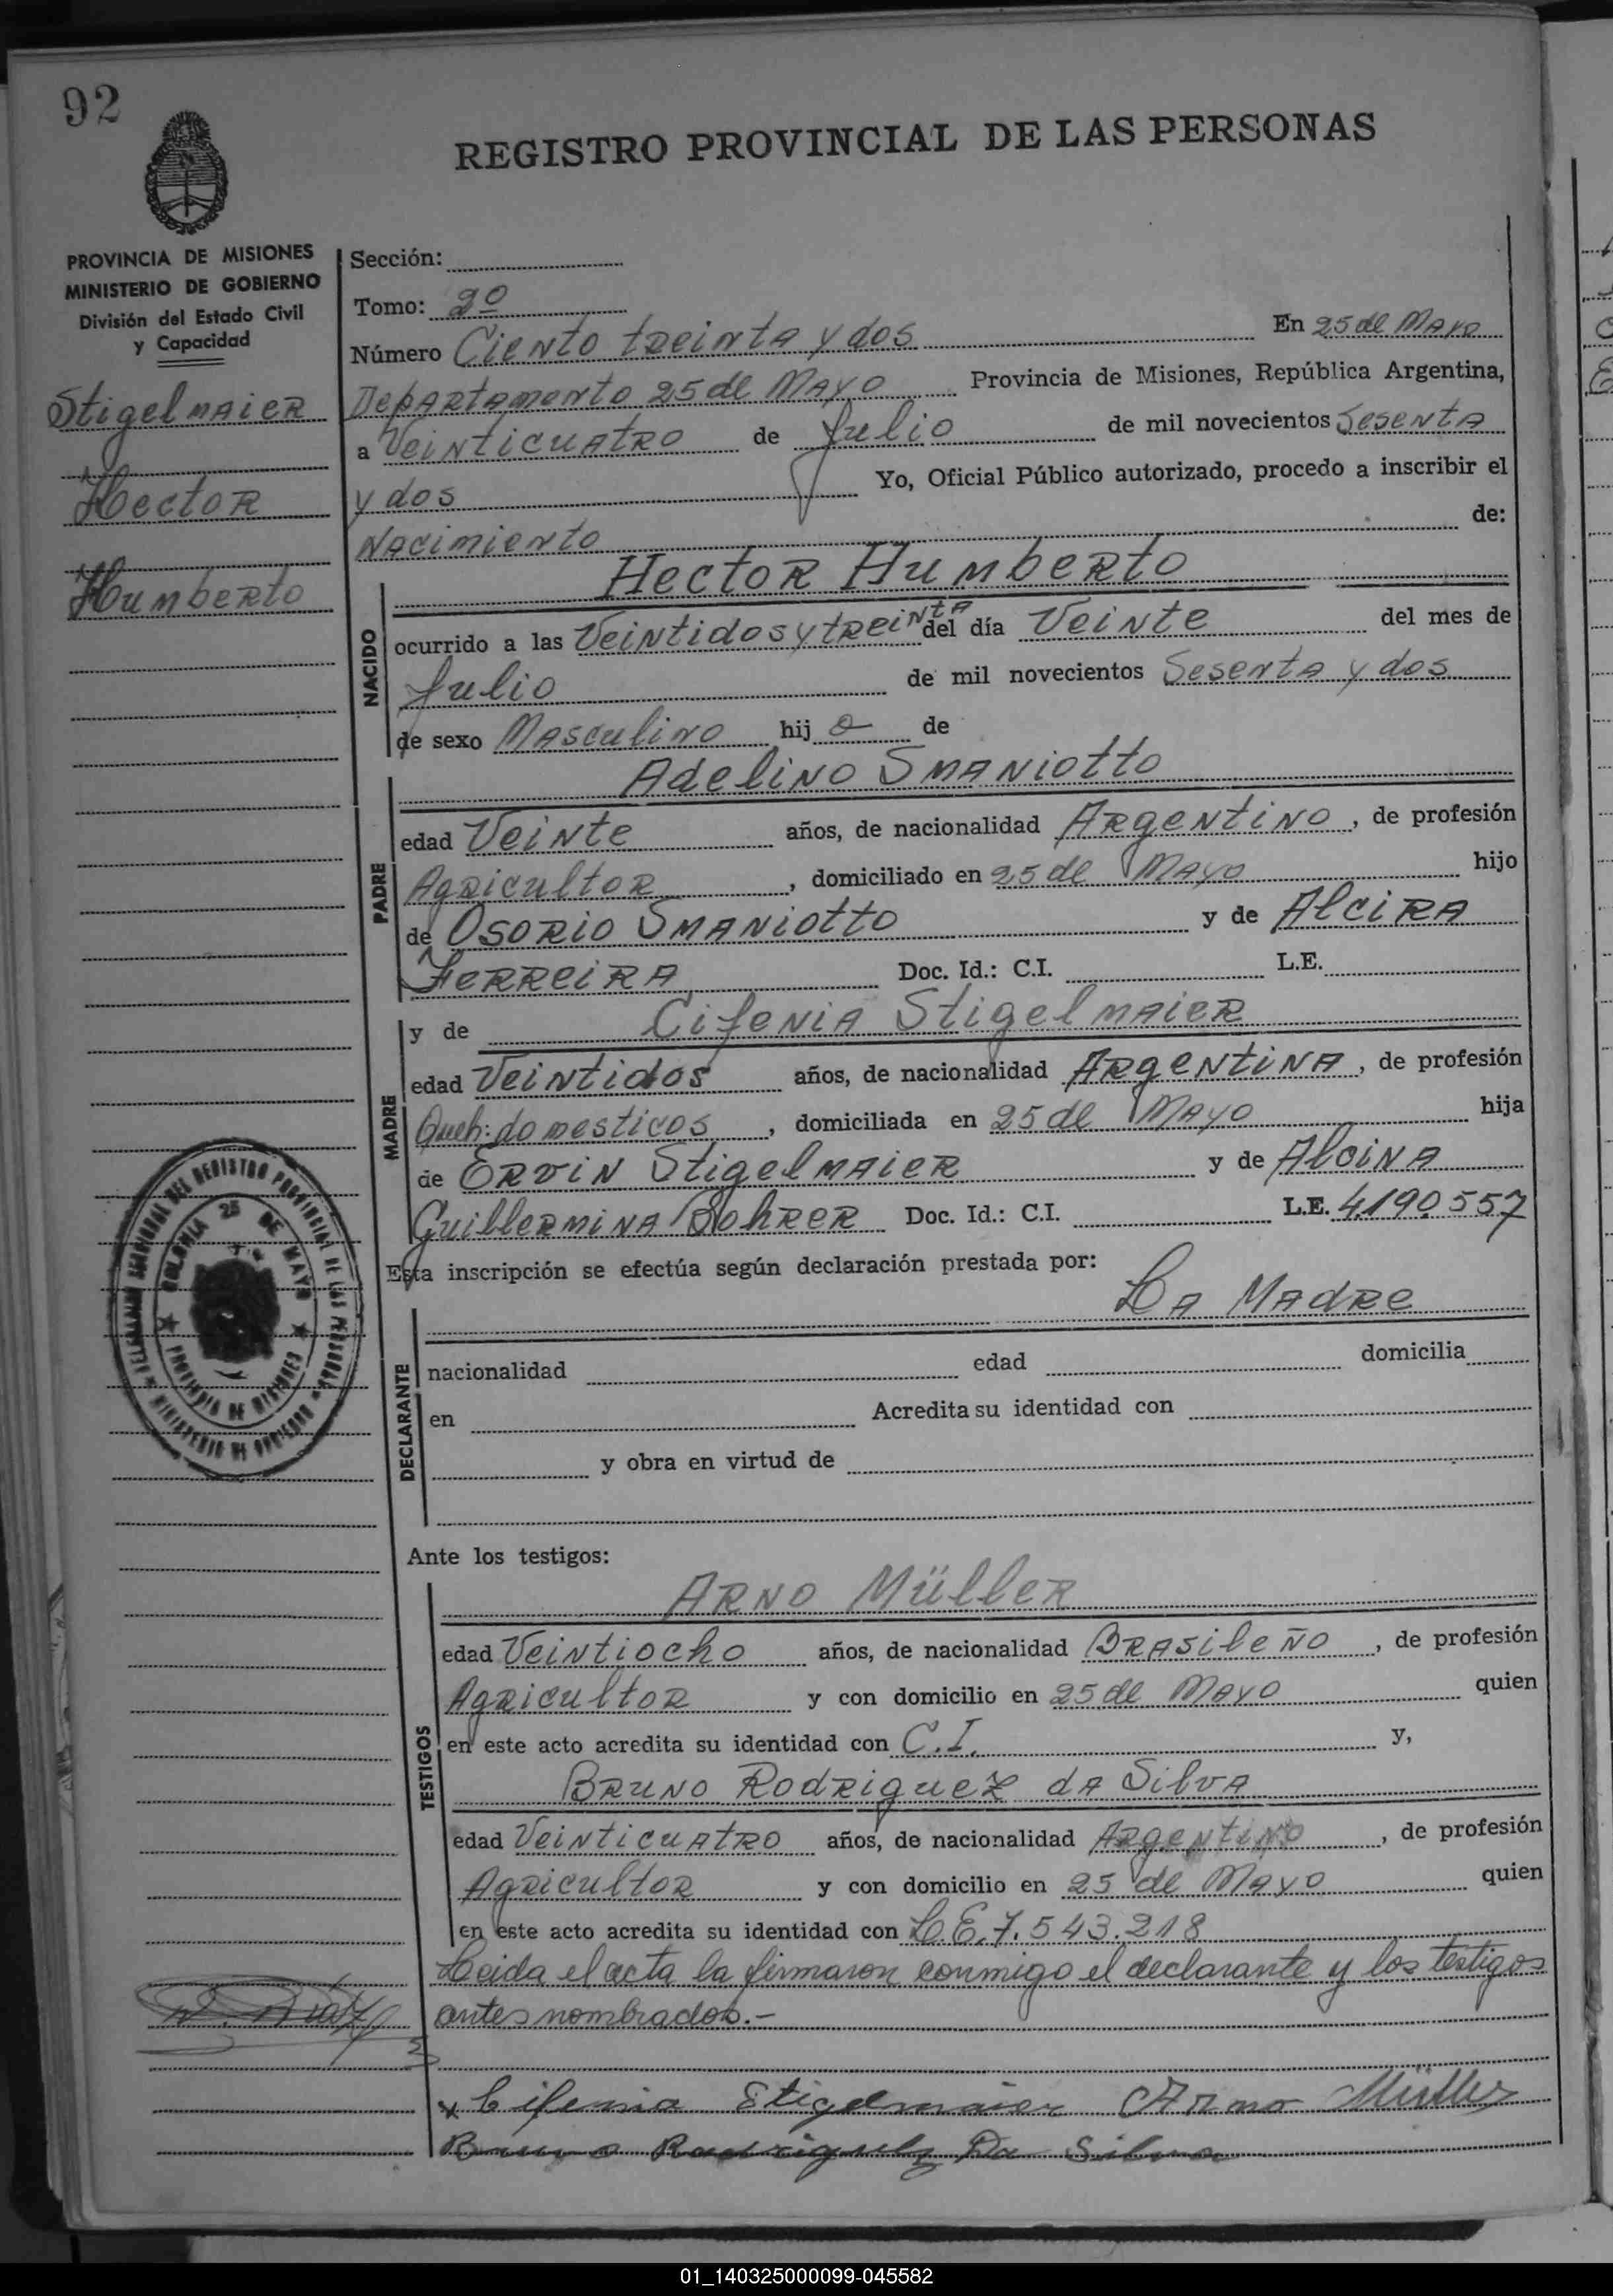 92
REGISTRO PROVINCIAL DE LAS PERSONAS
PROVINCIA DE MISIONES
MINISTERIO DE GOBIERNO
División del Estado Civil
y Capacidad
Stigelmaier
Hector
Humberto
Sección:
Tomo: 2º
Número Ciento treinta y dos En 25 de Mayo
Departamento 25 de Mayo Provincia de Misiones, República Argentina,
a Veinticuatro de Julio de mil novecientos Sesenta
y dos Yo, Oficial Público autorizado, procedo a inscribir el
Nacimiento de:
NACIDO
Hector Humberto
ocurrido a las Veintidos y treinta del día Veinte del mes de
Julio de mil novecientos Sesenta y dos
de sexo Masculino hij o de
PADRE
Adelino Smaniotto
edad Veinte años, de nacionalidad Argentino, de profesión
Agricultor, domiciliado en 25 de Mayo hijo
de Osorio Smaniotto y de Alcira
Ferreira Doc. Id.: C.I. L.E.
MADRE
y de Cifenia Stigelmaier
edad Veintidos años, de nacionalidad Argentina, de profesión
Queh: domesticos, domiciliada en 25 de Mayo hija
de Ervin Stigelmaier y de Alcina
Guillermina Bohrer Doc. Id.: C.I. L.E. 4190.557
Esta inscripción se efectúa según declaración prestada por:
La Madre
DECLARANTE
nacionalidad edad domicilia
en Acredita su identidad con
y obra en virtud de
Ante los testigos:
TESTIGOS
Arno Müller
edad Veintiocho años, de nacionalidad Brasileño, de profesión
Agricultor y con domicilio en 25 de Mayo quien
en este acto acredita su identidad con C.I. y,
Bruno Rodriguez da Silva
edad Veinticuatro años, de nacionalidad Argentino, de profesión
Agricultor y con domicilio en 25 de Mayo quien
en este acto acredita su identidad con L.E. 7.543.218
Leida el acta la firmaron conmigo el declarante y los testigos
antes nombrados.-
x Cifenia Stigelmaier Arno Müller
Bruno Rodriguez Da Silva
COLONIA 25 DE MAYO
PROVINCIA DE MISIONES
MINISTERIO DE GOBIERNO
01_140325000099-045582